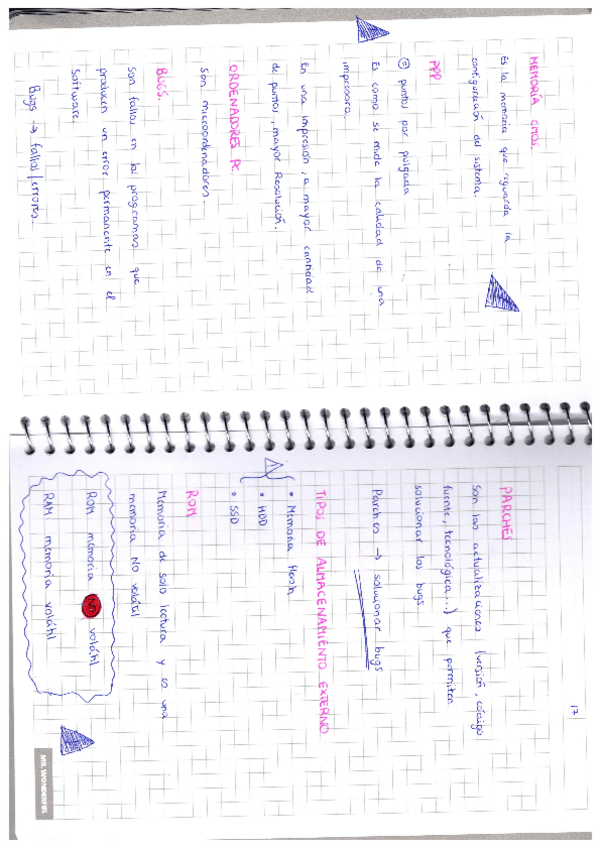 MEMORÍA CMOS.
Es la memoria que reguarda la
configuración del sistema.
PPP
puntos por pulgada
Es como se mide la calidad de una
impresora.
En una impresión, a mayor cantidad
de puntos, mayor Resolución.
ORDENADORES PC.
Son microordenadores.
BUGS.
Son fallos en los programas que
producen un error permanente en el
software.
Bugs → fallos/errores.
17
PARCHES
Son las actualizaciones (versión, código
fuente, tecnológica...) que permiten
solucionar los bugs
Parches → solucionar bugs
TIPOS DE ALMACENAMIENTO EXTERNO
• Memoria Flash
• HDD
• SSD
ROM
Memoria de solo lectura y es una
memoria NO volátil
ROM memoria NO volátil
RAM memoria volátil
MR. WONDERFUL